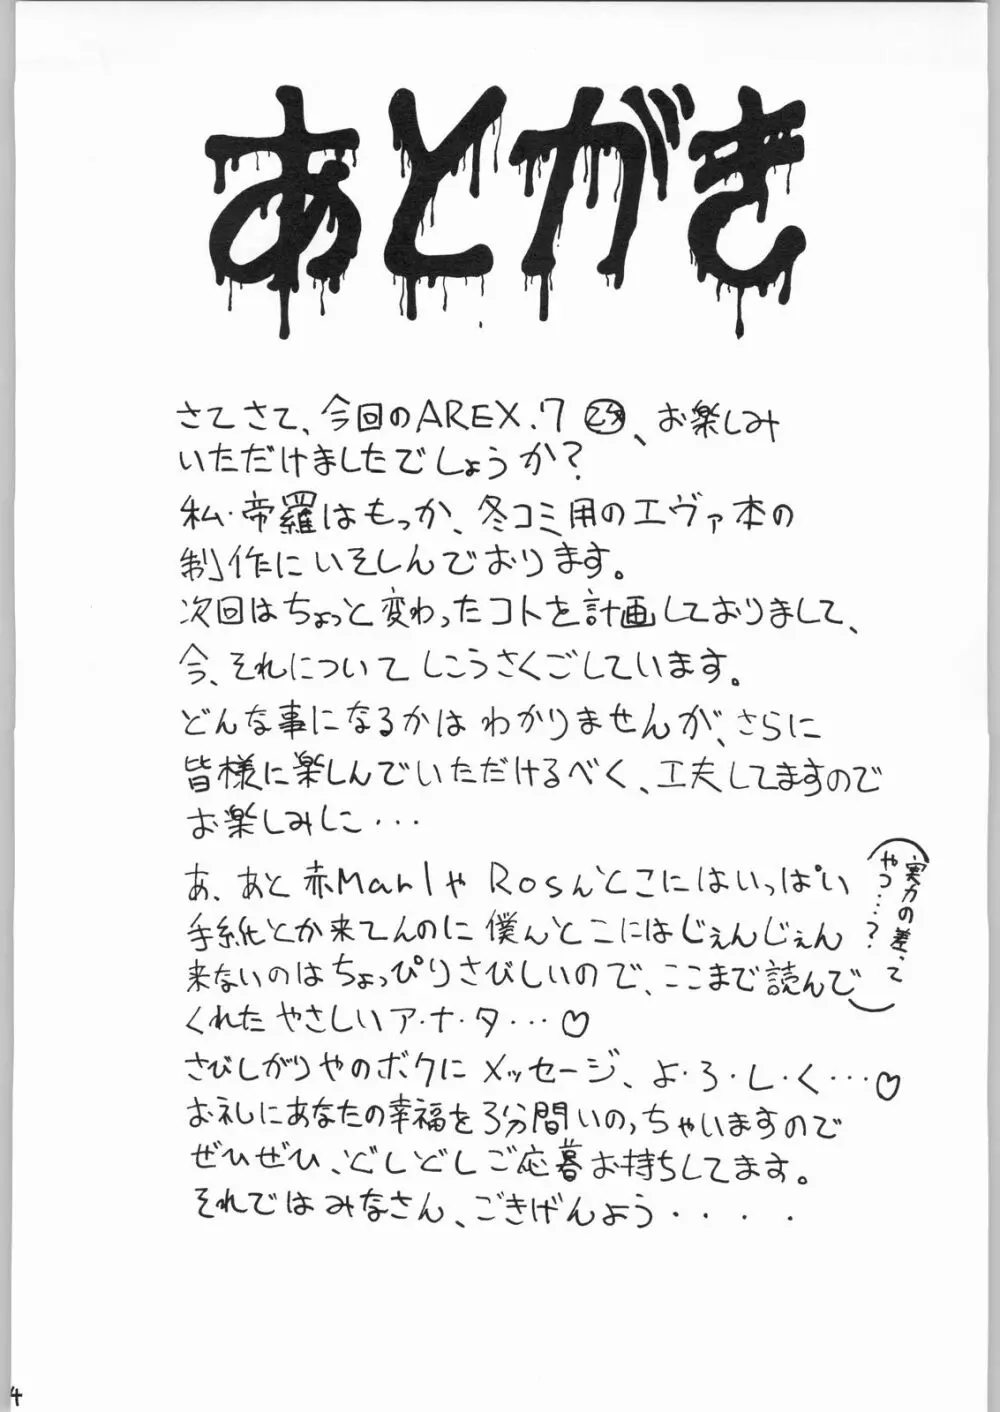 あとがき
さてさて、今回のAREX.7、お楽しみ
いただけましたでしょうか?
私・帝羅はもっか、冬コミ用のエヴァ本の
制作にいそしんでおります。
次回はちょっと変わったコトを計画しておりまして、
今、それについてしこうさくごしています。
どんな事になるかはわかりませんが、さらに
皆様に楽しんでいただけるべく、工夫してますので
お楽しみに・・・
あ、あと赤ManlやRosんとこにはいっぱい
手紙とか来てんのに僕んとこにはじぇんじぇん
来ないのはちょっぴりさびしいので、ここまで読んで
くれたやさしいア・ナ・タ・・・♡
(実力の差、て
やつ・・・?)
さびしがりやのボクにメッセージ、よ・ろ・し・く・・・♡
お礼にあなたの幸福を3分間いのっちゃいますので
ぜひぜひ、どしどしご応募お持ちしてます。
それではみなさん、ごきげんよう・・・・
4